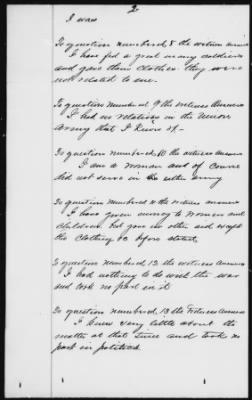 2
I was
To question numbered 8 the witness answers
I have fed a great many soldiers
and gave them clothes. they were
not related to me.
To question numbered 9 the witness answers
I had no relatives in the Union
Army that I know of.
To question numbered 10 the witness answers
I am a woman and of course
did not serve in either army
To question numbered 11 the witness answers
I have given money to women and
children but give no other aid except
the clothing &c before stated.
To question numbered 12 the witness answers
I had nothing to do with the war
and took no part in it
To question numbered 13 the witness answers
I knew very little about the
matter at that time and took no
part in politics.